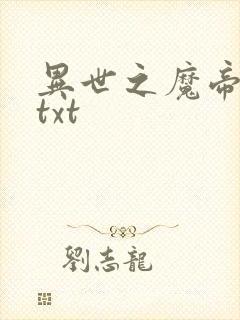 異世之魔帝
txt
劉志龍